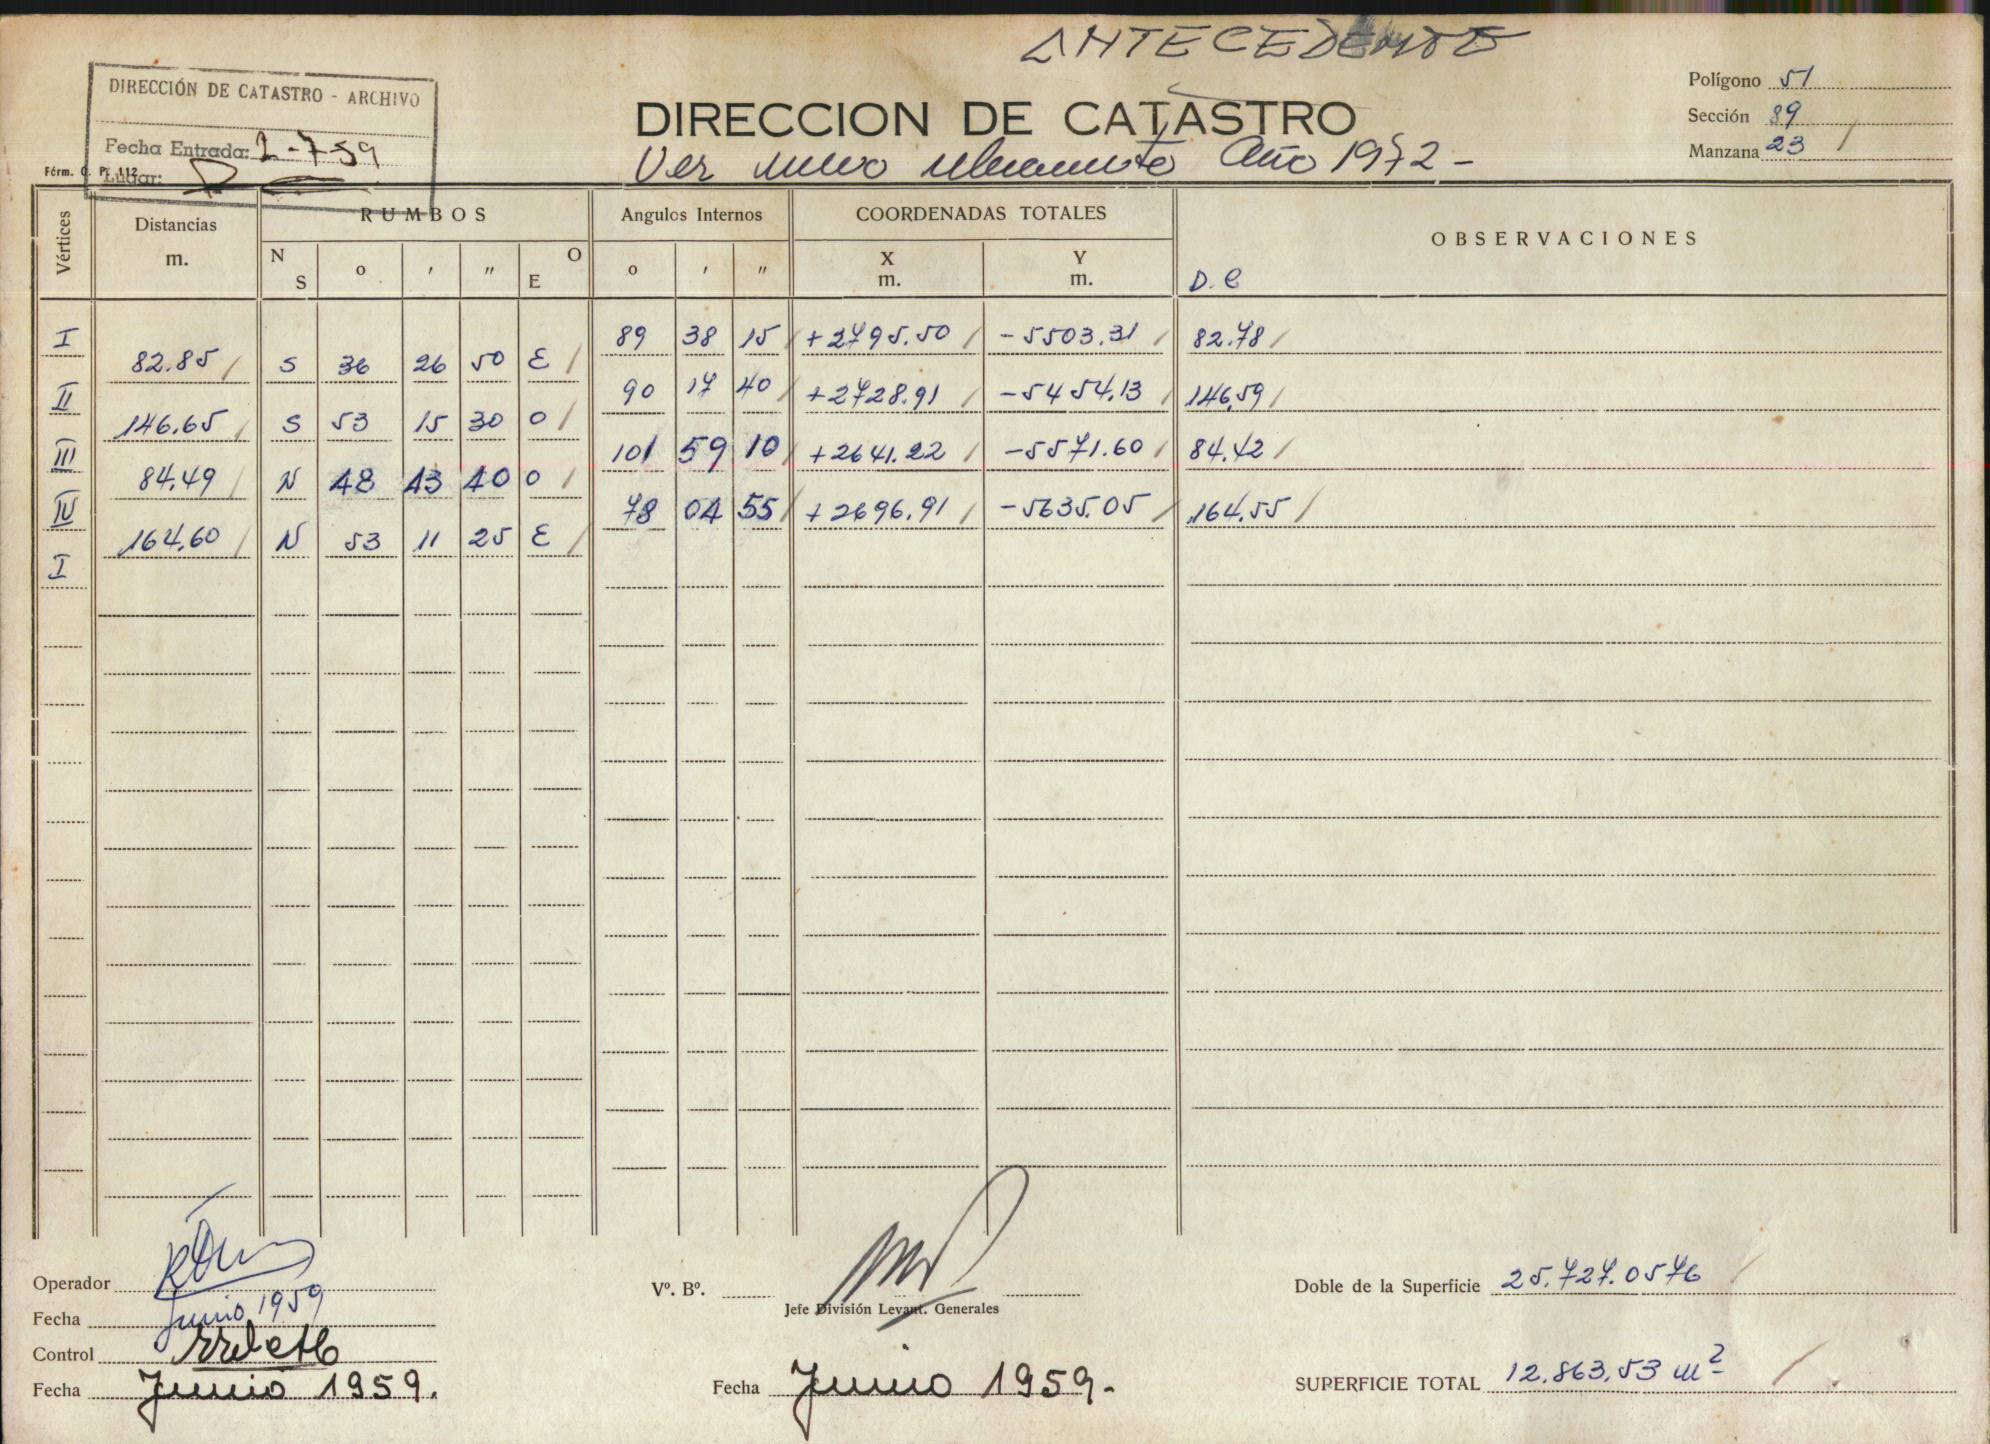 ANTECEDENTE
DIRECCIÓN DE CATASTRO - ARCHIVO
Fecha Entrada: 2-7-59
Lugar:
Fórm. C. P. 112
DIRECCION DE CATASTRO
Ver nuevo relevamiento Año 1972-
Polígono 51
Sección 89
Manzana 23
Vértices Distancias m. RUMBOS Angulos Internos COORDENADAS TOTALES OBSERVACIONES
N S o ' " O E o ' " X m. Y m. D.C
I 89 38 15 +2795.50 -5503.31 82.78
82.85 S 36 26 50 E
II 90 17 40 +2728.91 -5454.13 146.59
146.65 S 53 15 30 O
III 101 59 10 +2641.22 -5571.60 84.42
84.49 N 48 43 40 O
IV 78 04 55 +2696.91 -5635.05 164.55
164.60 N 53 11 25 E
I
Operador
Fecha Junio 1959
Control
Fecha Junio 1959.
Vº. Bº.
Jefe División Levant. Generales
Fecha Junio 1959.-
Doble de la Superficie 25.727.0576
SUPERFICIE TOTAL 12.863,53 m²